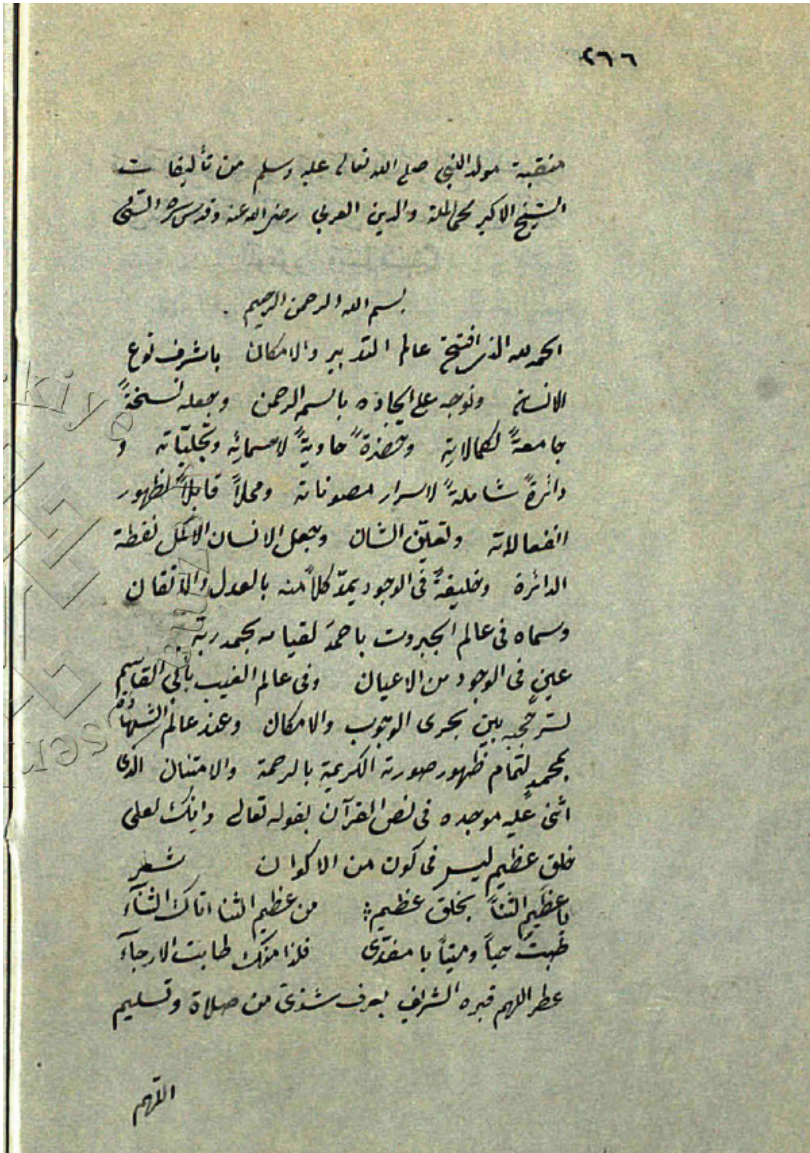 ٢٦٦
منقبة مولد النبي صلى الله تعالى عليه وسلم من تأليفات
الشيخ الاكبر محى الملة والدين العربي رضى الله عنه وقدس سره
بسم الله الرحمن الرحيم
الحمد لله الذى افتتح عالم التدبير والامكان باشرف نوع
الانسان وتوجه على ايجاده باسم الرحمن وجعله نسخةً
جامعةً لكمالاته وحضرةً حاويةً لاسمائه وتجلياته و
دائرةً شاملةً لاسرار مصوناته ومحلاً قابلاً لظهور
انفعالاته وتعلق الشان وجعل الانسان الاكمل نقطة
الدائرة وخليفةً فى الوجود يمدّ كلاً منه بالعدل والاتقان
وسماه فى عالم الجبروت باحمدَ لقيامه بحمد ربه
عين فى الوجود من الاعيان وفى عالم الغيب بابى القاسم
بين بحرى الوجوب والامكان وعند عالم الشهادة
بمحمدٍ لتمام ظهور صورته الكريمة بالرحمة والامتنان الذى
اثنى عليه موجده فى نص القرآن بقوله تعالى وانك لعلى
خلق عظيم ليس فى كون من الاكوان شعر
يا عظيم الثنا بخلق عظيم من عظيم الثنا اتاك الثناء
طبت حياً وميتاً يا مفدّى فلذا منك طابت الارجاء
عطر اللهم قبره الشريف بعرف شذى من صلاة وتسليم
اللهم